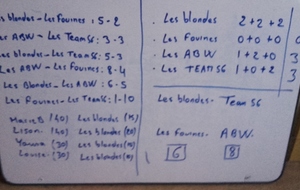 Les blondes - Les Fouines : 5-2
Les ABW - Les Team 56 : 3-3
Les blondes - Les Team 56 : 5-3
Les ABW - Les Fouines : 8-4
Les Blondes - Les ABW : 6-5
Les Fouines - Les Team 56 : 1-10
(40) Les blondes (15)
Lison (40) Les blondes (20)
(30) Les blondes
Louise (30) Les blondes
. Les blondes 2+2+2
. Les Fouines 0+0+0 0
. Les ABW 1+2+0 3
. Les TEAM 56 1+0+2 3
Les blondes - Team 56
Les Fouines - ABW.
6 8